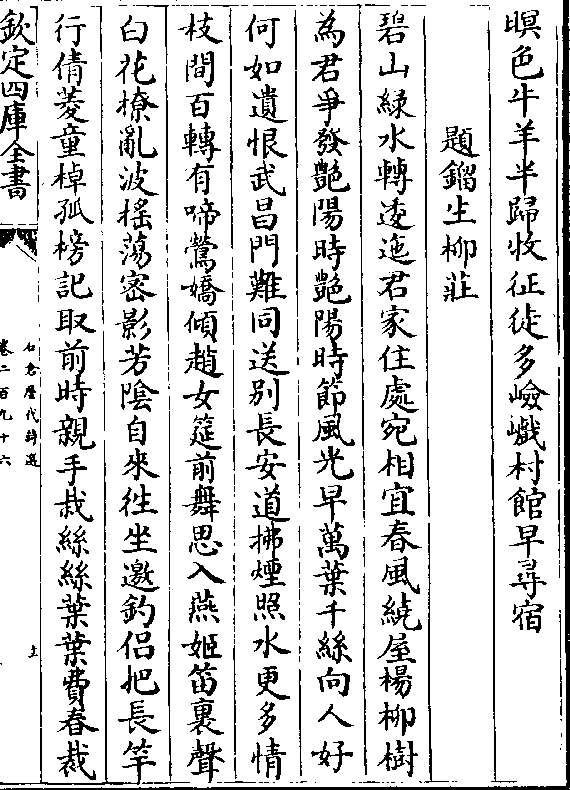 暝色牛羊半歸牧征徒多嶮巇村館早尋宿
題鎦生柳莊
碧山緑水轉逶迤君家住處宛相宜春風繞屋楊柳樹
為君爭發艶陽時艶陽時節風光早萬葉千絲向人好
何如遺恨武昌門難同送别長安道拂煙照水更多情
枝間百轉有啼鶯嬌傾趙女筵前舞思入燕姬笛裏聲
白花撩亂波揺蕩宻影芳陰自來徃坐邀釣侣把長竿
行倩菱童棹孤榜記取前時親手栽絲絲葉葉費春裁
欽定四庫全書
石倉歴代詩選
卷二百九十六
土